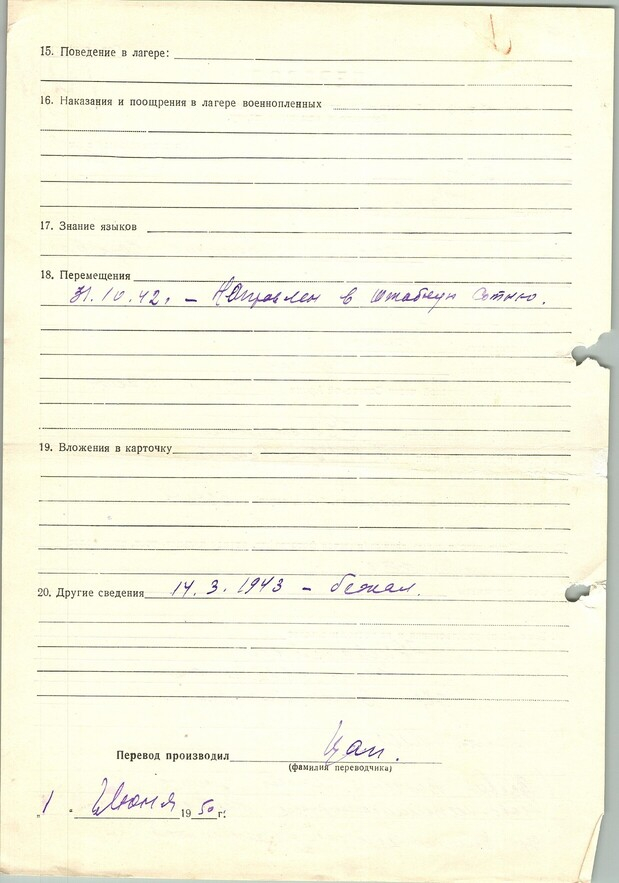 15. Поведение в лагере:
16. Наказания и поощрения в лагере военнопленных
17. Знание языков
18. Перемещения
31.10.42. – Направлен в штабную сотню.
19. Вложения в карточку
20. Другие сведения 14.3.1943 – бежал.
Перевод производил
(фамилия переводчика)
"1" Июня 1950 г.